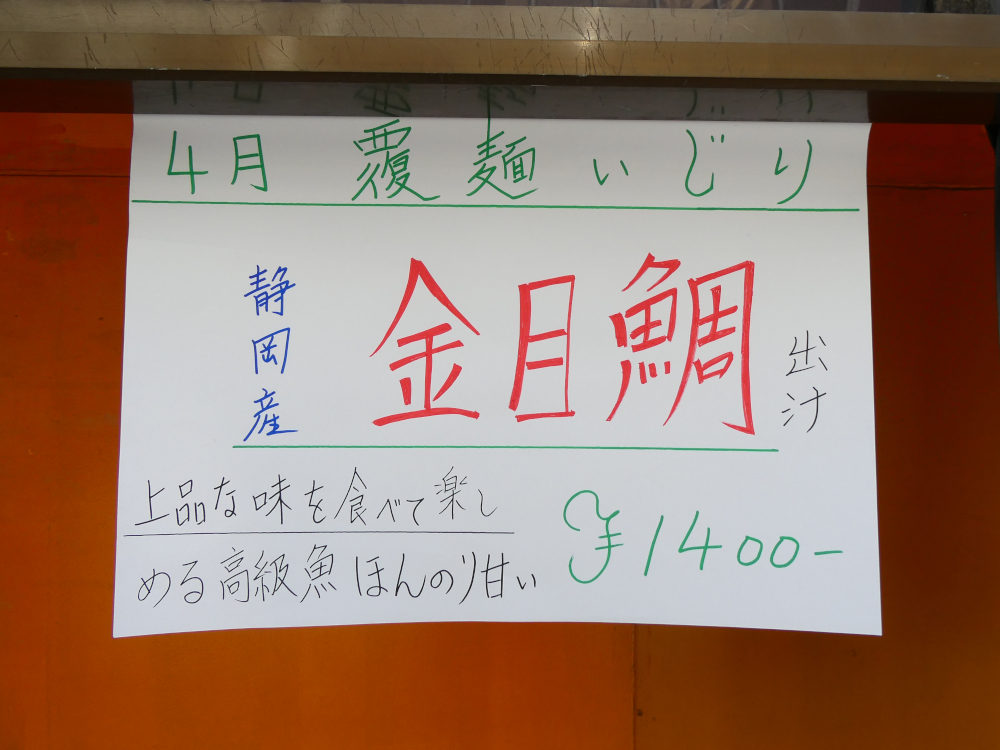 4月 覆麺いじり
静岡産 金目鯛 出汁
上品な味を食べて楽し
める高級魚ほんのり甘い
¥1400-